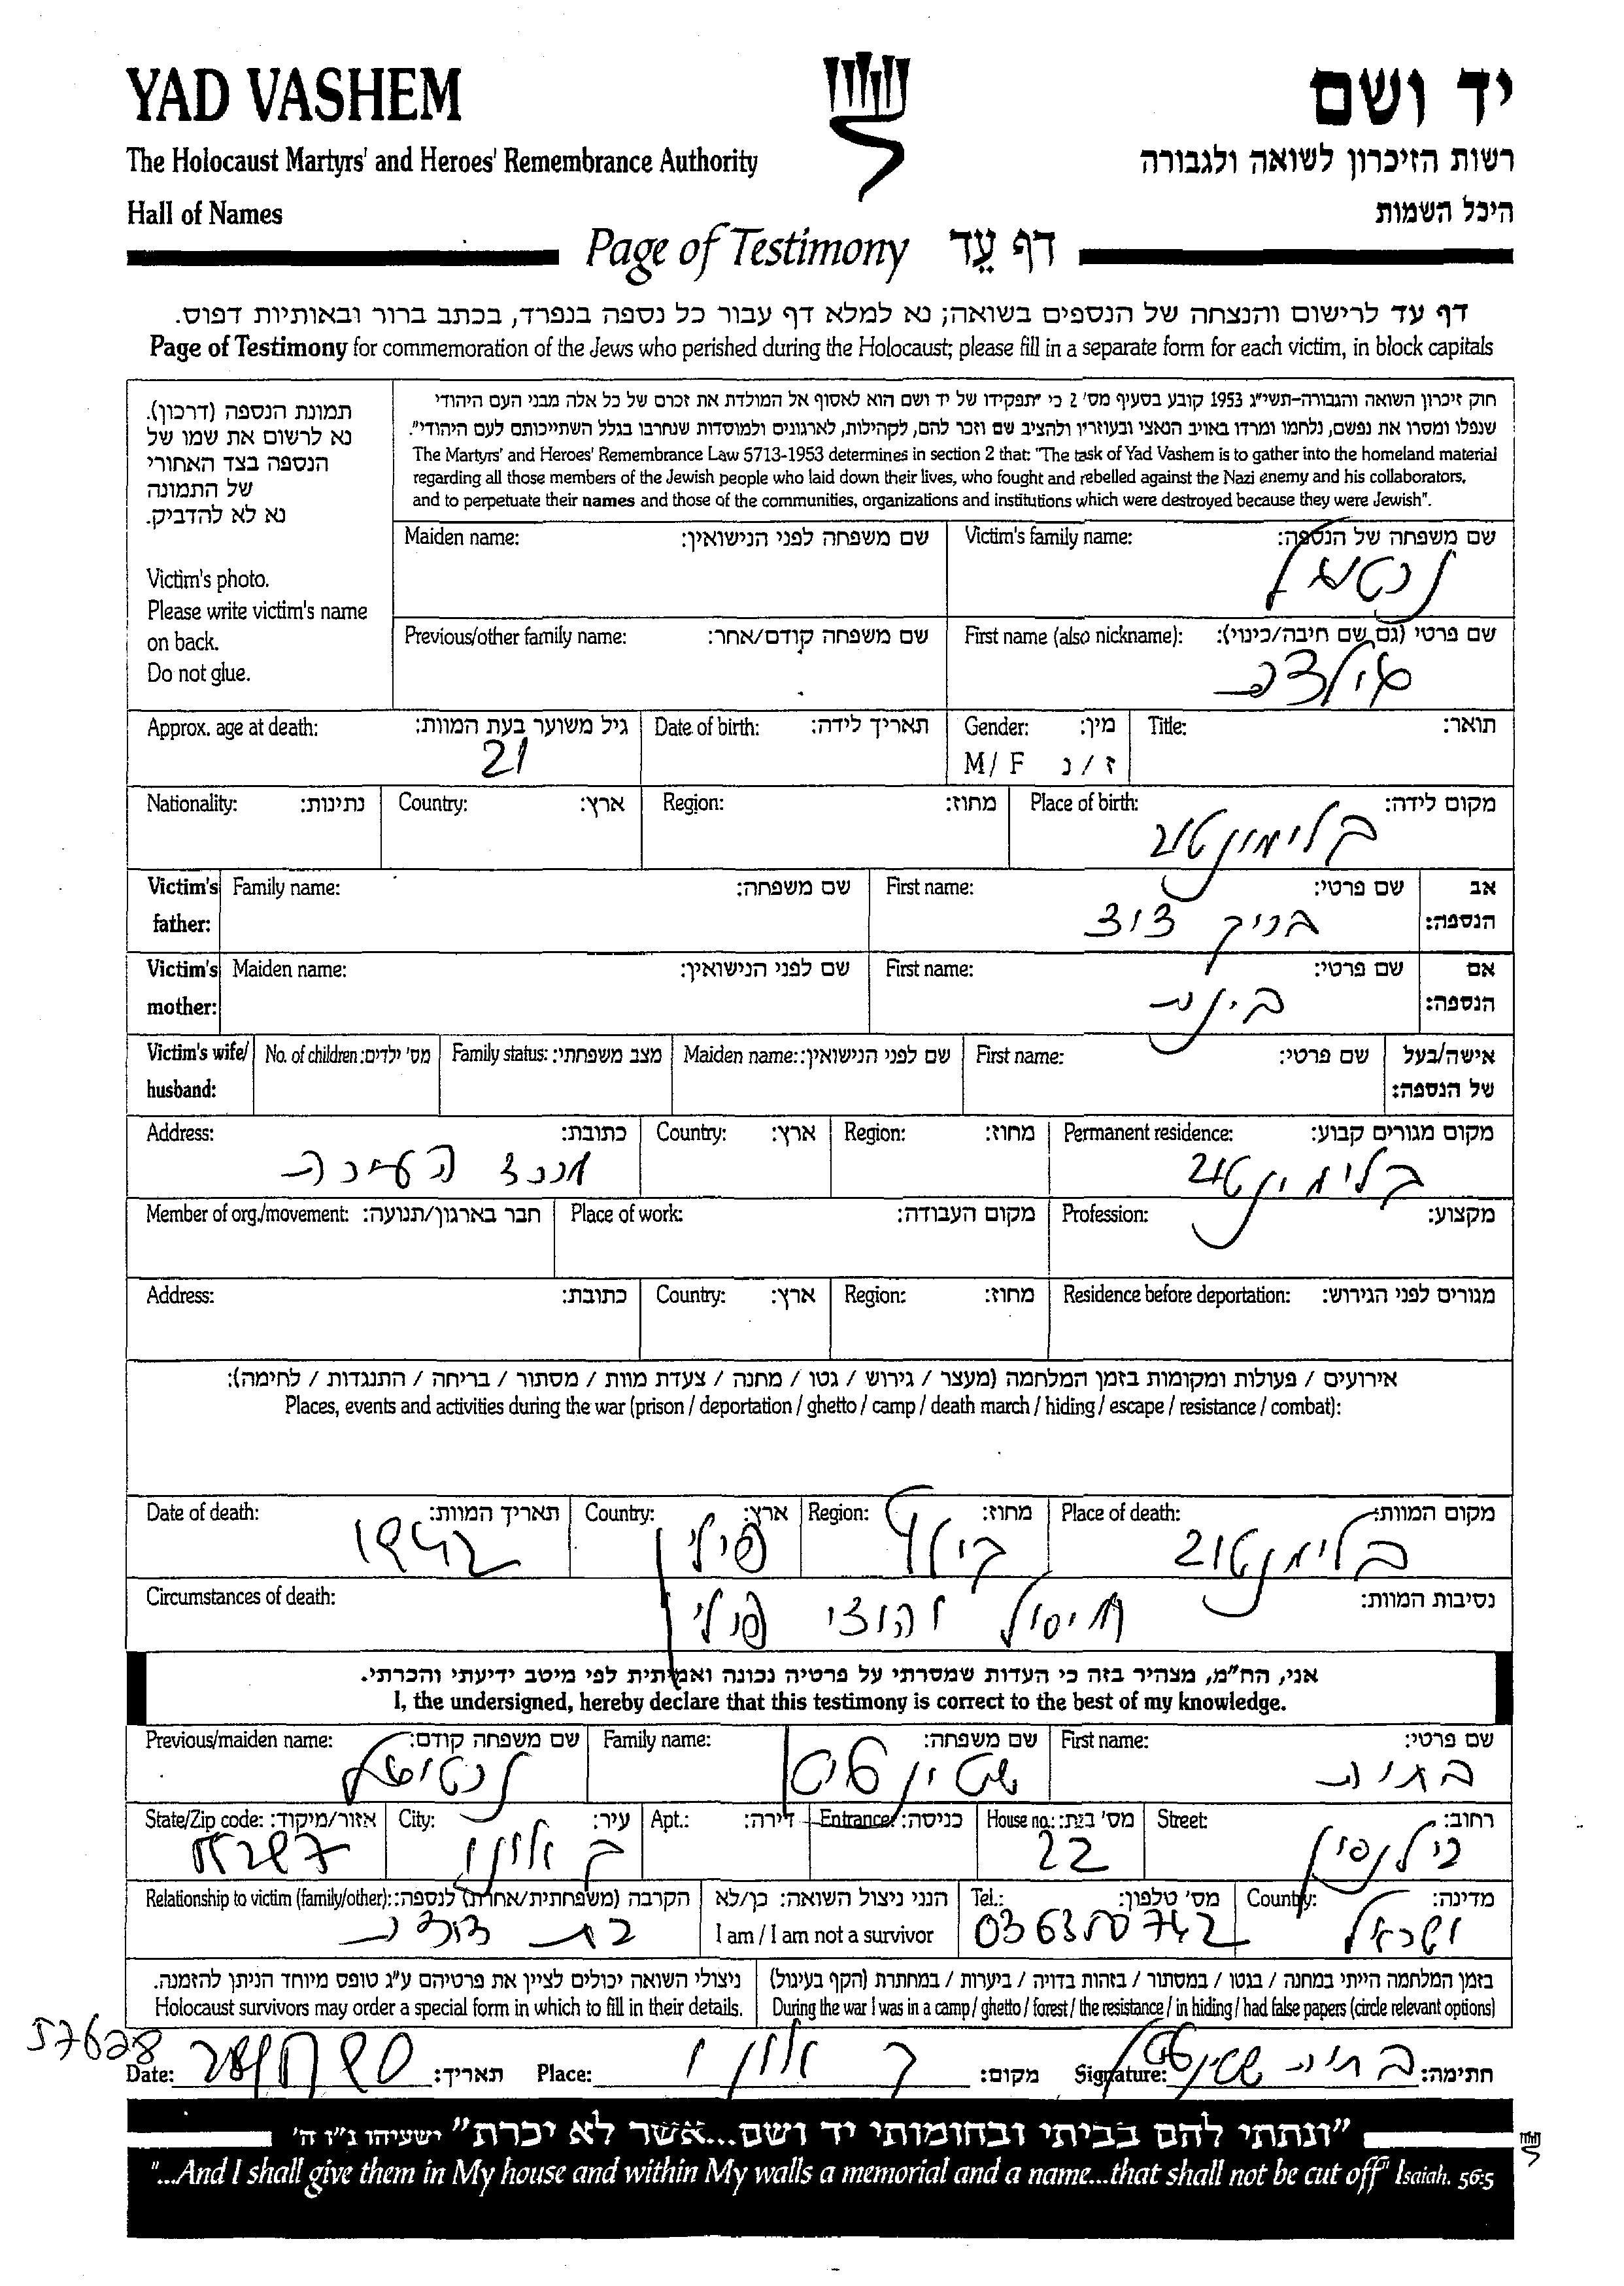 YAD VASHEM
יד ושם
The Holocaust Martyrs' and Heroes' Remembrance Authority
רשות הזיכרון לשואה ולגבורה
Hall of Names
היכל השמות
Page of Testimony דף עֵד
דף עד לרישום והנצחה של הנספים בשואה; נא למלא דף עבור כל נספה בנפרד, בכתב ברור ובאותיות דפוס.
Page of Testimony for commemoration of the Jews who perished during the Holocaust; please fill in a separate form for each victim, in block capitals
תמונת הנספה (דרכון).
נא לרשום את שמו של
הנספה בצד האחורי
של התמונה
נא לא להדביק.
Victim's photo.
Please write victim's name
on back.
Do not glue.
חוק זיכרון השואה והגבורה-תשי״ג 1953 קובע בסעיף מס' 2 כי ״תפקידו של יד ושם הוא לאסוף אל המולדת את זכרם של כל אלה מבני העם היהודי
שנפלו ומסרו את נפשם, נלחמו ומרדו באויב הנאצי ובעוזריו ולהציב שם וזכר להם, לקהילות, לארגונים ולמוסדות שנחרבו בגלל השתייכותם לעם היהודי״.
The Martyrs' and Heroes' Remembrance Law 5713-1953 determines in section 2 that: "The task of Yad Vashem is to gather into the homeland material
regarding all those members of the Jewish people who laid down their lives, who fought and rebelled against the Nazi enemy and his collaborators,
and to perpetuate their names and those of the communities, organizations and institutions which were destroyed because they were Jewish".
Maiden name: שם משפחה לפני הנישואין: Victim's family name: שם משפחה של הנספה:
Previous/other family name: שם משפחה קודם/אחר: First name (also nickname): שם פרטי (גם שם חיבה/כינוי):
Approx. age at death: גיל משוער בעת המוות: Date of birth: תאריך לידה: Gender: מין: Title: תואר:
21 M/ F ז / נ
Nationality: נתינות: Country: ארץ: Region: מחוז: Place of birth: מקום לידה:
קלימונטוב
Victim's father: Family name: שם משפחה: First name: שם פרטי: אב הנספה:
דוד
Victim's mother: Maiden name: שם לפני הנישואין: First name: שם פרטי: אם הנספה:
Victim's wife/ husband: No. of children: מס' ילדים: Family status: מצב משפחתי: Maiden name: שם לפני הנישואין: First name: שם פרטי: אישה/בעל של הנספה:
Address: כתובת: Country: ארץ: Region: מחוז: Permanent residence: מקום מגורים קבוע:
קלימונטוב
Member of org./movement: חבר בארגון/תנועה: Place of work: מקום העבודה: Profession: מקצוע:
Address: כתובת: Country: ארץ: Region: מחוז: Residence before deportation: מגורים לפני הגירוש:
אירועים / פעולות ומקומות בזמן המלחמה (מעצר / גירוש / גטו / מחנה / צעדת מוות / מסתור / בריחה / התנגדות / לחימה):
Places, events and activities during the war (prison / deportation / ghetto / camp / death march / hiding / escape / resistance / combat):
Date of death: תאריך המוות: Country: ארץ: Region: מחוז: Place of death: מקום המוות:
1942 פולין קילץ קלימנטוב
Circumstances of death: נסיבות המוות:
חיסול יהודי פולין
אני, הח״מ, מצהיר בזה כי העדות שמסרתי על פרטיה נכונה ואמיתית לפי מיטב ידיעתי והכרתי.
I, the undersigned, hereby declare that this testimony is correct to the best of my knowledge.
Previous/maiden name: שם משפחה קודם: Family name: שם משפחה: First name: שם פרטי:
בתיה
State/Zip code: אזור/מיקוד: City: עיר: Apt.: דירה: Entrance: כניסה: House no.: מס' בית: Street: רחוב:
ק אונו 22
Relationship to victim (family/other): הקרבה (משפחתית/אחרת) לנספה: הנני ניצול השואה: כן/לא Tel.: מס' טלפון: Country: מדינה:
בת דודה I am / I am not a survivor 036350742 ישראל
ניצולי השואה יכולים לציין את פרטיהם ע״ג טופס מיוחד הניתן להזמנה. בזמן המלחמה הייתי במחנה / בגטו / במסתור / בזהות בדויה / ביערות / במחתרת (הקף בעיגול)
Holocaust survivors may order a special form in which to fill in their details. During the war I was in a camp / ghetto / forest / the resistance / in hiding / had false papers (circle relevant options)
57628
Date: תאריך: Place: ק אונו מקום: Signature: בתיה חתימה:
״ונתתי להם בביתי ובחומותי יד ושם...אשר לא יכרת״ ישעיהו נ״ו ה'
"...And I shall give them in My house and within My walls a memorial and a name...that shall not be cut off" Isaiah. 56:5